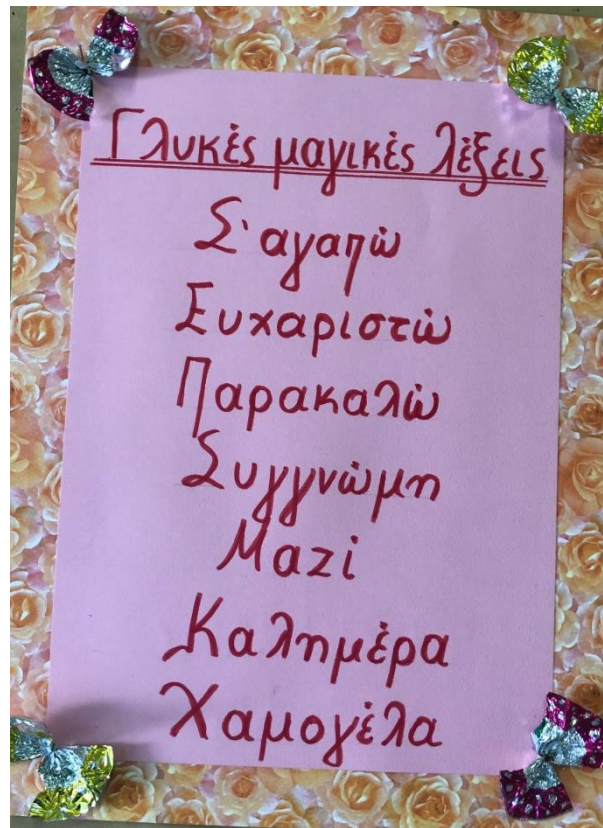 Γλυκές μαγικές λέξεις
Σ' αγαπώ
Ευχαριστώ
Παρακαλώ
Συγγνώμη
Μαζί
Καλημέρα
Χαμογέλα